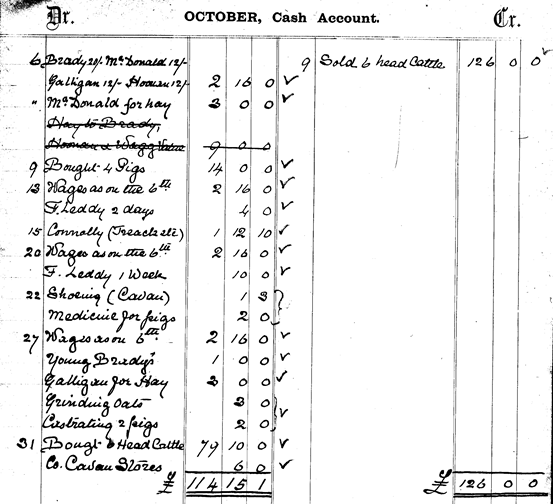 Dr. OCTOBER, Cash Account. Cr.
6 Brady 20/- McDonald 12/-
Galligan 12/- Hoonan 12/- 2 16 0 ✓
" McDonald for hay 3 0 0 ✓
Hay to Brady,
Hoonan & 9 0 0
9 Bought 4 Pigs 14 0 0 ✓
13 Wages as on the 6th 2 16 0 ✓
F. Leddy 2 days 4 0 ✓
15 Connolly (Treacle etc) 1 12 10 ✓
20 Wages as on the 6th 2 16 0 ✓
F. Leddy 1 Week 10 0 ✓
22 Shoeing (Cavan) 1 3
Medicine for pigs 2 0
27 Wages as on 6th 2 16 0 ✓
Young Brady's 1 0 0 ✓
Galligan for Hay 3 0 0 ✓
Grinding Oats 3 0
Castrating 2 pigs 2 0 ✓
31 Bought Head Cattle 79 10 0 ✓
Co. Cavan Stores 6 0 ✓
£ 114 15 1
9 Sold 6 head Cattle 126 0 0 ✓
£ 126 0 0